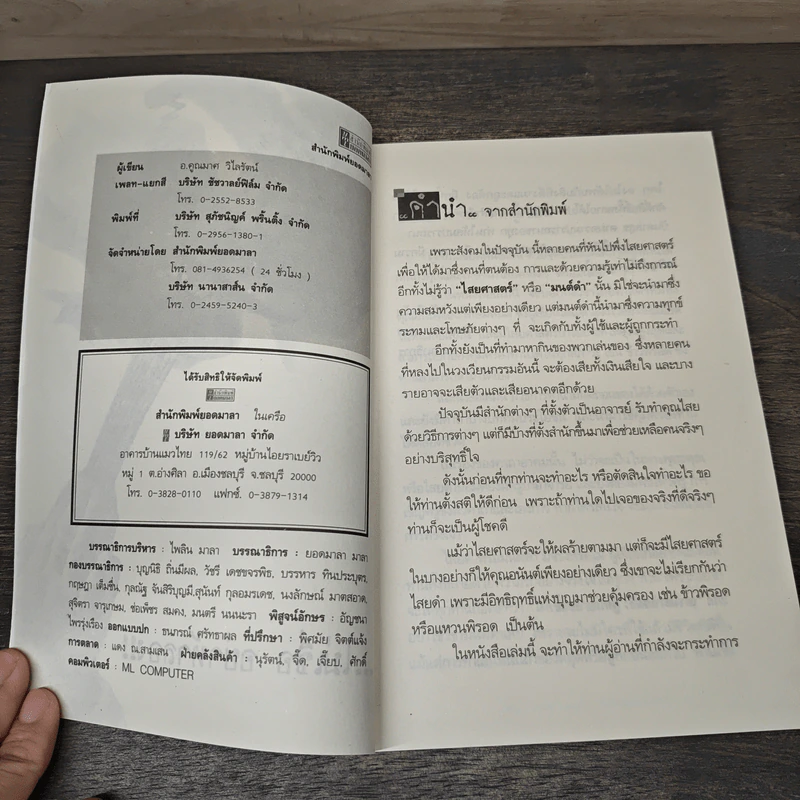 สำนักพิมพ์ยอดมาลา
ผู้เขียน อ.คูณมาศ วิไลรัตน์
เพลท-แยกสี บริษัท ชัชวาลย์ฟิล์ม จำกัด
โทร. 0-2552-8533
พิมพ์ที่ บริษัท สุภัชนิญค์ พริ้นติ้ง จำกัด
โทร. 0-2956-1380-1
จัดจำหน่ายโดย สำนักพิมพ์ยอดมาลา
โทร. 081-4936254 ( 24 ชั่วโมง )
บริษัท นานาสาส์น จำกัด
โทร. 0-2459-5240-3
ได้รับสิทธิให้จัดพิมพ์
สำนักพิมพ์ยอดมาลา ในเครือ
บริษัท ยอดมาลา จำกัด
อาคารบ้านแมวไทย 119/62 หมู่บ้านไอยราเบย์วิว
หมู่ 1 ต.อ่างศิลา อ.เมืองชลบุรี จ.ชลบุรี 20000
โทร. 0-3828-0110 แฟกซ์. 0-3879-1314
บรรณาธิการบริหาร : ไพลิน มาลา บรรณาธิการ : ยอดมาลา มาลา
กองบรรณาธิการ : บุญนิธิ ถิ่นมีผล, วัชรี เดชขจรพิธ, บรรหาร ทินประบุตร,
กฤษฎา เต็มชื่น, กุลณัฐ จันสิริบุญมี,สุนันท์ กุลอมรเดช, นงลักษณ์ มาตสอาด,
สุจิตรา จารุเกษม, ช่อเพ็ชร สมคง, มนตรี นนนะรา พิสูจน์อักษร : อัญชนา
ไพรรุ่งเรือง ออกแบบปก : ธนาภรณ์ ศรัทธาผล ที่ปรึกษา : พิศมัย จิตต์แจ้ง
การตลาด : แดง ณ.สามเสน ฝ่ายคลังสินค้า : นุรัตน์, จี๊ด, เจี๊ยบ, ศักดิ์
คอมพิวเตอร์ : ML COMPUTER
คำนำ จากสำนักพิมพ์
เพราะสังคมในปัจจุบัน นี้หลายคนที่หันไปพึ่งไสยศาสตร์
เพื่อให้ได้มาซึ่งคนที่ตนต้อง การและด้วยความรู้เท่าไม่ถึงการณ์
อีกทั้งไม่รู้ว่า "ไสยศาสตร์" หรือ "มนต์ดำ" นั้น มิใช่จะนำมาซึ่ง
ความสมหวังแต่เพียงอย่างเดียว แต่มนต์ดำนี้นำมาซึ่งความทุกข์
ระทมและโทษภัยต่างๆ ที่ จะเกิดกับทั้งผู้ใช้และผู้ถูกกระทำ
อีกทั้งยังเป็นที่ทำมาหากินของพวกเล่นของ ซึ่งหลายคน
ที่หลงไปในวงเวียนกรรมอันนี้ จะต้องเสียทั้งเงินเสียใจ และบาง
รายอาจจะเสียตัวและเสียอนาคตอีกด้วย
ปัจจุบันมีสำนักต่างๆ ที่ตั้งตัวเป็นอาจารย์ รับทำคุณไสย
ด้วยวิธีการต่างๆ แต่ก็มีบ้างที่ตั้งสำนักขึ้นมาเพื่อช่วยเหลือคนจริงๆ
อย่างบริสุทธิ์ใจ
ดังนั้นก่อนที่ทุกท่านจะทำอะไร หรือตัดสินใจทำอะไร ขอ
ให้ท่านตั้งสติให้ดีก่อน เพราะถ้าท่านใดไปเจอของจริงที่ดีจริงๆ
ท่านก็จะเป็นผู้โชคดี
แม้ว่าไสยศาสตร์จะให้ผลร้ายตามมา แต่ก็จะมีไสยศาสตร์
ในบางอย่างก็ให้คุณอนันต์เพียงอย่างเดียว ซึ่งเขาจะไม่เรียกกันว่า
ไสยดำ เพราะมีอิทธิฤทธิ์แห่งบุญมาช่วยคุ้มครอง เช่น ข้าวพิรอด
หรือแหวนพิรอด เป็นต้น
ในหนังสือเล่มนี้ จะทำให้ท่านผู้อ่านที่กำลังจะกระทำการ